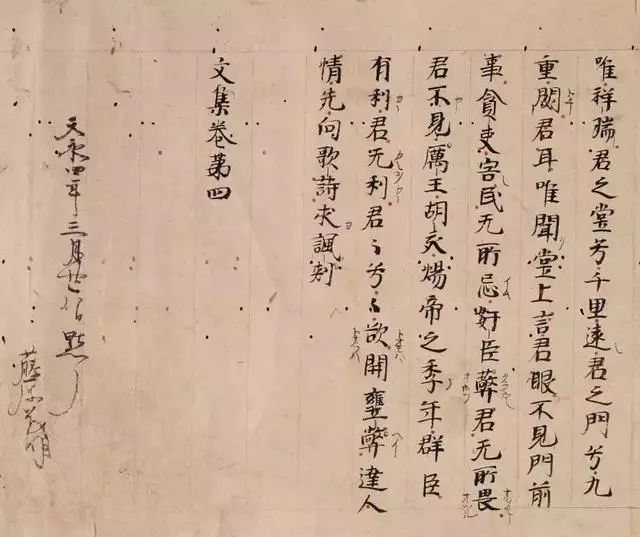 唯祥瑞君之堂兮千里遠君之門兮九
重閟君耳唯聞堂上言君眼不見門前
事貪吏害民无所忌奸臣蔽君无所畏
君不見厲王胡亥煬帝之季年群臣
有利君无利君〻兮〻欲開壅弊達人
情先向歌詩求諷刺
文集卷第四
天永四年三月廿八日點了
藤原茂明